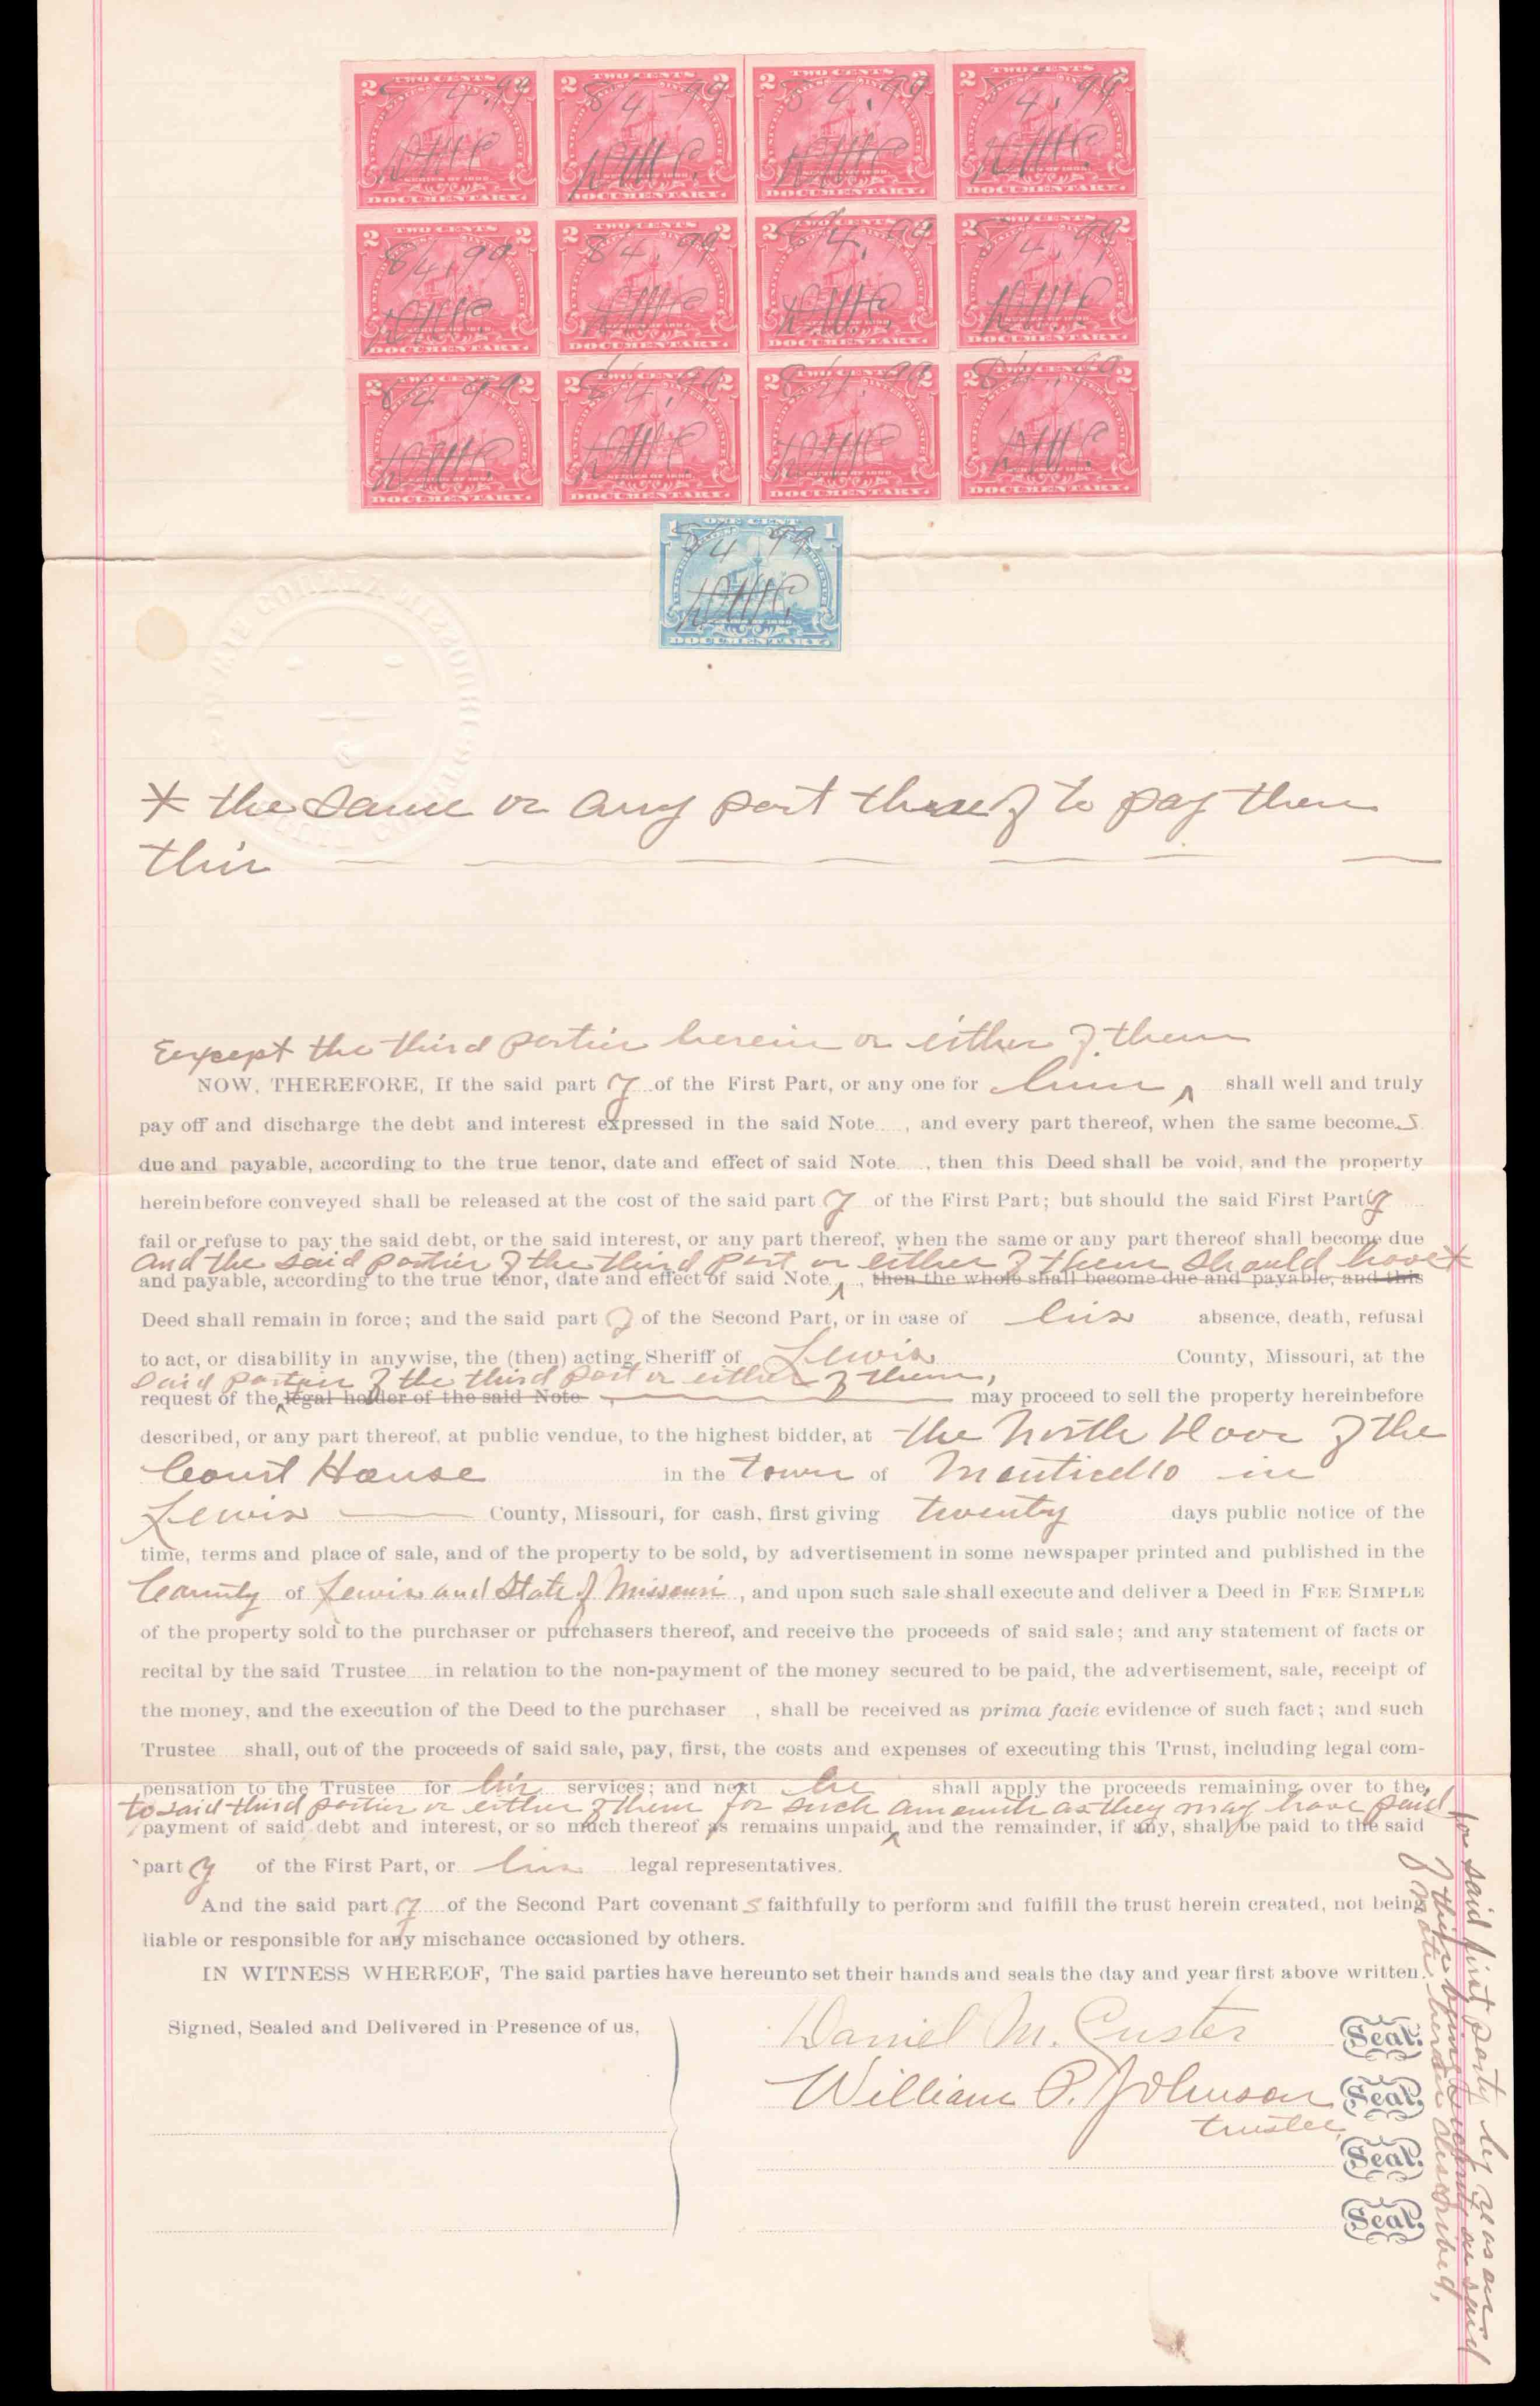 2 TWO CENTS 2 2 TWO CENTS 2 2 TWO CENTS 2 2 TWO CENTS 2
8/4.99 8/4-99 8 4.99 /4.99
DOCUMENTARY. DOCUMENTARY. DOCUMENTARY. DOCUMENTARY.
2 TWO CENTS 2 2 TWO CENTS 2 2 TWO CENTS 2 2 TWO CENTS 2
8/4.99 8/4.99 8/4.99 8/4.99
DOCUMENTARY. DOCUMENTARY. DOCUMENTARY. DOCUMENTARY.
2 TWO CENTS 2 2 TWO CENTS 2 2 TWO CENTS 2 2 TWO CENTS 2
8/4.99 8/4.99 8/4.99 8/4.99
SERIES OF 1898
DOCUMENTARY. DOCUMENTARY. DOCUMENTARY. DOCUMENTARY.
1 ONE CENT 1
8/4 99
DOCUMENTARY.
* the same or any part thereof to pay then
this
Except the third parties herein or either of them
NOW, THEREFORE, If the said part y of the First Part, or any one for him ^ shall well and truly
pay off and discharge the debt and interest expressed in the said Note , and every part thereof, when the same become s
due and payable, according to the true tenor, date and effect of said Note , then this Deed shall be void, and the property
hereinbefore conveyed shall be released at the cost of the said part y of the First Part; but should the said First Party
fail or refuse to pay the said debt, or the said interest, or any part thereof, when the same or any part thereof shall become due
and the said parties of the third part or either of them should have *
and payable, according to the true tenor, date and effect of said Note ^ , then the whole shall become due and payable, and this
Deed shall remain in force; and the said part y of the Second Part, or in case of his absence, death, refusal
to act, or disability in anywise, the (then) acting Sheriff of Lewis County, Missouri, at the
said parties of the third part or either of them,
request of the ^ legal holder of the said Note , may proceed to sell the property hereinbefore
described, or any part thereof, at public vendue, to the highest bidder, at the North Door of the
Court House in the town of Monticello in
Lewis County, Missouri, for cash, first giving twenty days public notice of the
time, terms and place of sale, and of the property to be sold, by advertisement in some newspaper printed and published in the
County of Lewis and State of Missouri , and upon such sale shall execute and deliver a Deed in FEE SIMPLE
of the property sold to the purchaser or purchasers thereof, and receive the proceeds of said sale; and any statement of facts or
recital by the said Trustee in relation to the non-payment of the money secured to be paid, the advertisement, sale, receipt of
the money, and the execution of the Deed to the purchaser , shall be received as prima facie evidence of such fact; and such
Trustee shall, out of the proceeds of said sale, pay, first, the costs and expenses of executing this Trust, including legal com-
pensation to the Trustee for his services; and next he shall apply the proceeds remaining over to the
to said third parties or either of them for such amounts as they may have paid
payment of said debt and interest, or so much thereof as remains unpaid ^ and the remainder, if any, shall be paid to the said
part y of the First Part, or his legal representatives.
And the said part y of the Second Part covenant s faithfully to perform and fulfill the trust herein created, not being
liable or responsible for any mischance occasioned by others.
IN WITNESS WHEREOF, The said parties have hereunto set their hands and seals the day and year first above written.
Signed, Sealed and Delivered in Presence of us,
Daniel M. Custer Seal.
William P. Johnson Seal.
trustee
Seal.
Seal.
for said first party by reason
of their being security on said
note herein described,